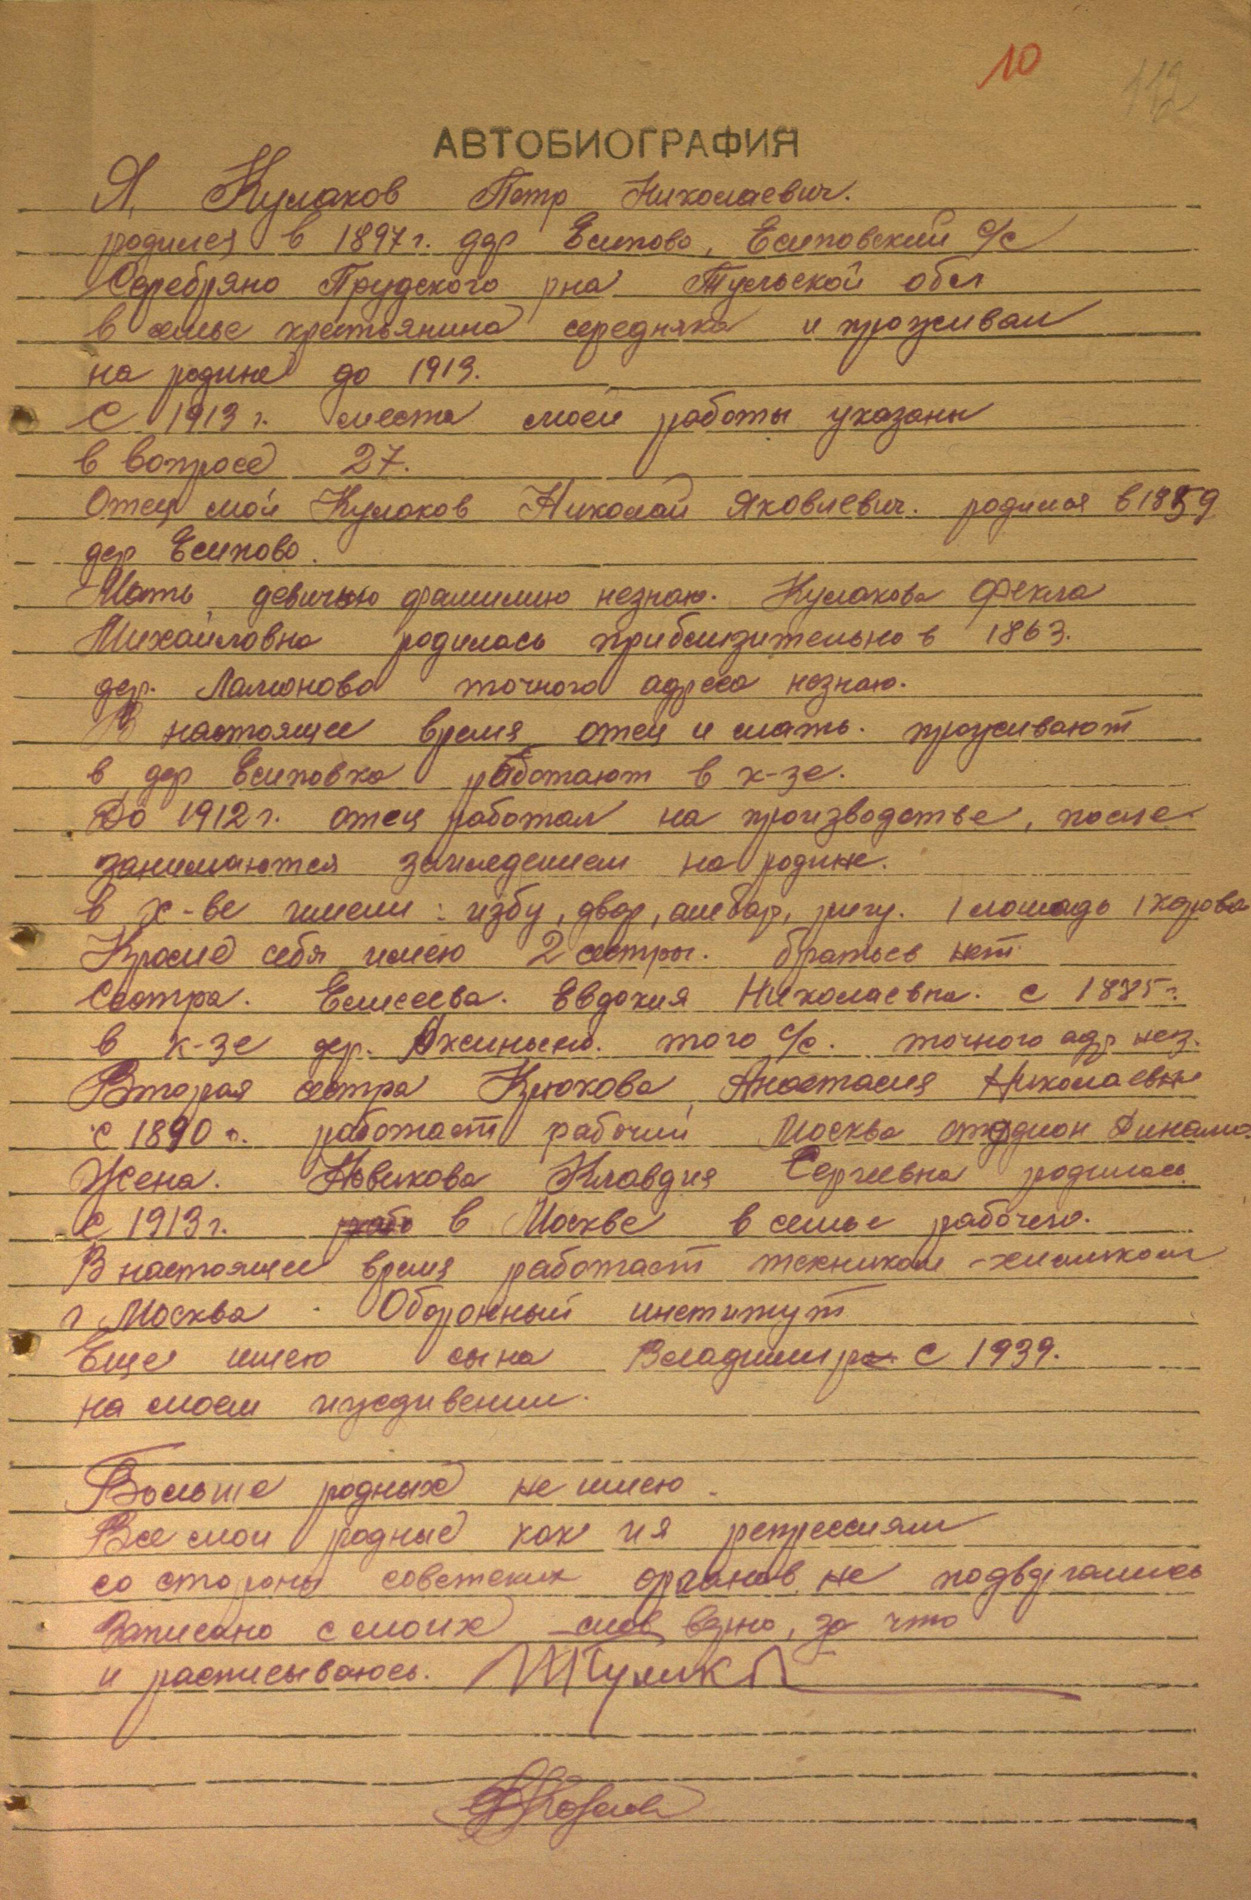 10
112
АВТОБИОГРАФИЯ
Я, Кулаков Петр Николаевич.
родился в 1897 г. дер Есипово, Есиповский с/с
Серебряно Прудского рна Тульской обл
в семье крестьянина середняка и проживал
на родине до 1913.
С 1913 г. места моей работы указаны
в вопросе 27.
Отец мой Кулаков Николай Яковлевич. родился в 1859
дер Есипово.
Мать, девичью фамилию незнаю. Кулакова Фекла
Михайловна родилась приблизительно в 1863.
дер. Ламоново точного адреса незнаю.
В настоящее время отец и мать. проживают
в дер Есиповка работают в к-зе.
До 1912 г. отец работал на производстве, после
занимаются земледелием на родине.
в х-ве имели: избу, двор, амбар, ригу. 1 лошадь 1 корова
Кроме себя имею 2 сестры. братьев нет.
Сестра. Елисеева. Евдокия Николаевна. с 1885 г.
в к-зе дер. того с/с. точного адр нез.
Вторая сестра Крюкова Анастасия Николаевна
с 1890 г. работает рабочий Москва стадион Динамо.
Жена. Новикова Клавдия Сергеевна родилась
с 1913 г. в Москве в семье рабочего.
В настоящее время работает техником-химиком
г Москва. Оборонный институт
Еще имею сына Владимира с 1939.
на моем иждивении.
Больше родных не имею.
Все мои родные как и я репрессиям
со стороны советских органов не подвергались
Записано с моих слов верно, за что
и расписываюсь.